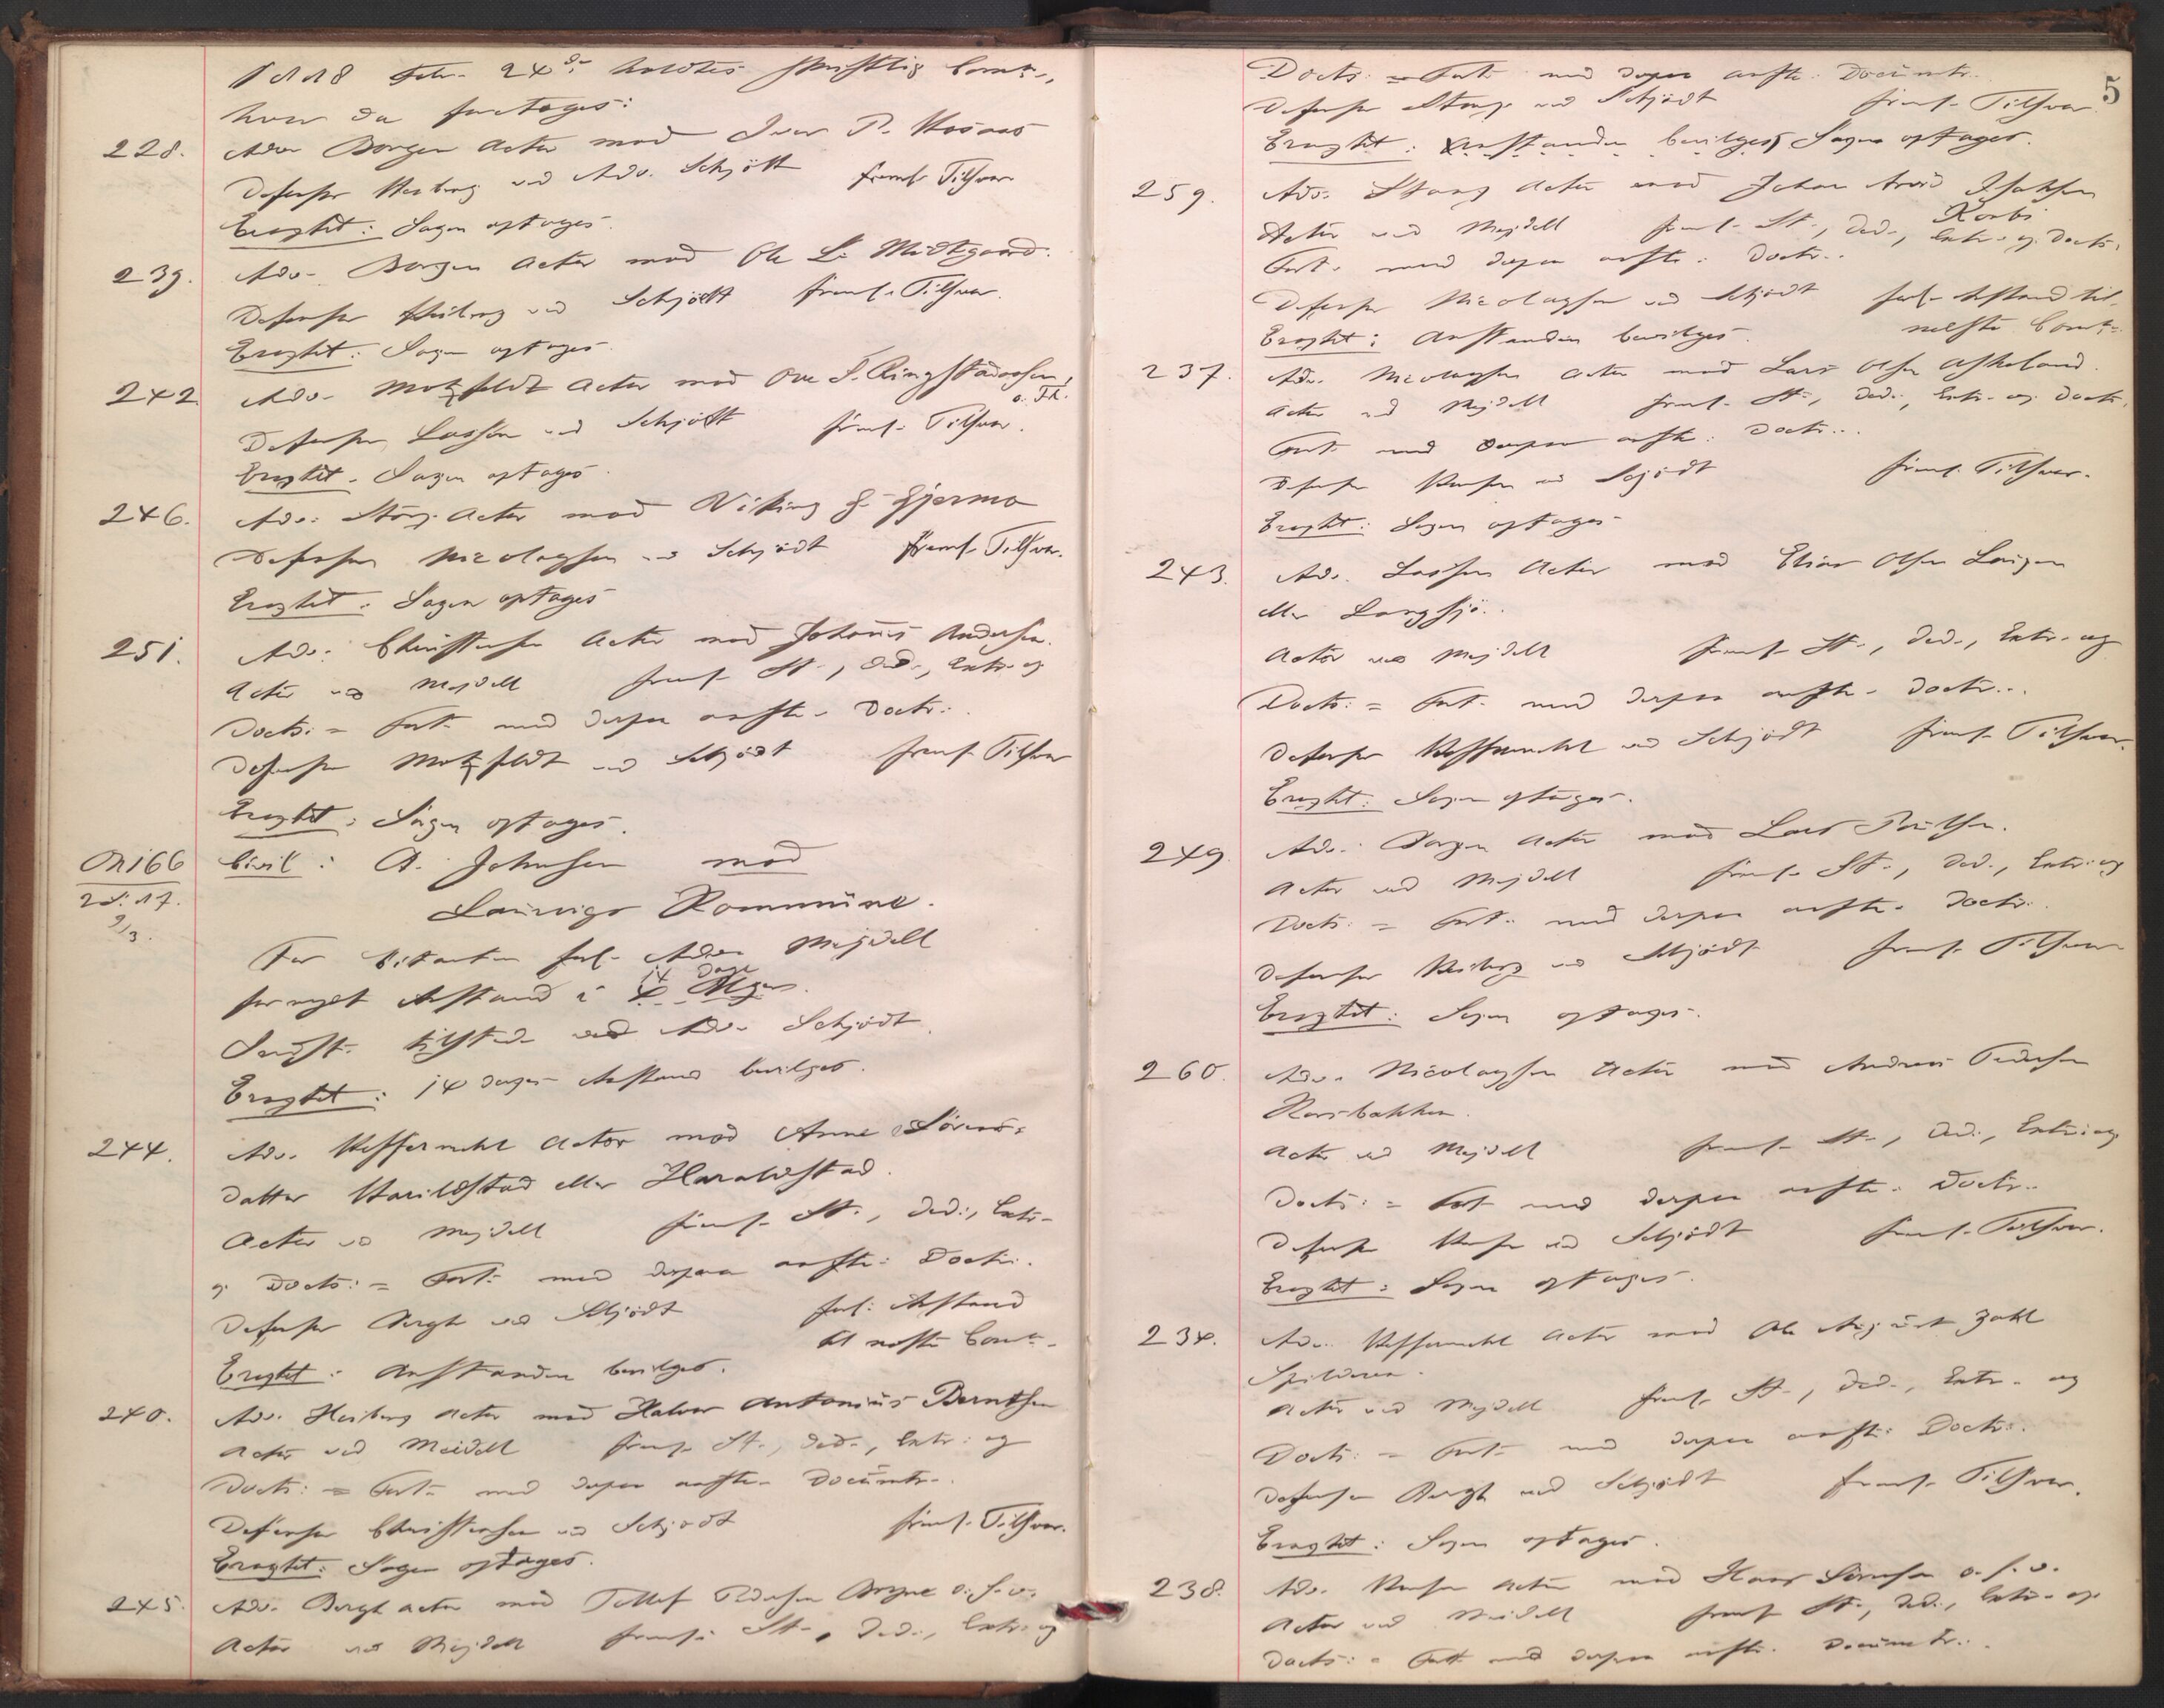 holdtes skriftlig
hvor da foretoges:
228. Adv. Borgen Actor mod Iver P.
Defensor Heiberg ved Adv. Schjödt freml. Tilsvar
Eragtet: Sagen optages.
239. Adv. Borgen Actor mod Ole L. Midtgaard.
Defensor Heiberg ved Schjödt freml. Tilsvar.
Eragtet: Sagen optages.
242 Adv. Motzfeldt Actor mod Ove S.
Defensor Lasson ved Schjödt freml. Tilsvar.
Eragtet. Sagen optages.
246. Adv. Stang Actor mod Viking G. Gjermo
Defensor Nicolaysen ved Schjödt freml. Tilsvar.
Eragtet. Sagen optages
251. Adv. Christensen Actor mod Johannes Andersen.
Actor ved Mejdell freml. St., Ded., Extr. og
Docts. = Fort. med derpaa Docts.
Defensor Motzfeldt ved Schjödt freml. Tilsvar
Eragtet: Sagen optages.
166 Civil: A. Johnsen mod
2d. 17. Laurvigs Kommune.
2/3.
For Citanten forl. Adv. Mejdell
fornyet Anstand i 14 Dage
tilstede ved Adv. Schjödt.
Eragtet: 14 Dages Anstand bevilges.
244. Adv. Actor mod Anne Sörens-
datter eller Haraldstad.
Actor ved Mejdell freml. St., Ded., Extr.
og Docts. = Fort. med derpaa Docts.
Defensor Bergh ved Schjödt forl. Anstand
til næste
Eragtet: Anstanden bevilges.
240. Adv. Heiberg Actor mod Halvor Antonius Berntsen
Actor ved Meidell freml. St., Ded., Extr. og
Docts. = Fort. med derpaa Documtr.
Defensor Christensen ved Schjödt freml. Tilsvar.
Eragtet: Sagen optages.
245. Adv. Bergh Actor mod Tellef Pedersen o.s.v.
Actor ved Mejdell freml. St., Ded., Extr. og
5
Docts. = Fort. med derpaa Documtr.
Defensor Stang ved Schjödt freml. Tilsvar
Eragtet: Anstanden bevilges, Sagen optages.
259. Adv. Stang Actor mod Johan Arvid Isaksen
Korbi
Actor ved Mejdell freml. St., Ded., Extr. og Docts.
Fort. med derpaa Docts.
Defensor Nicolaysen ved Schjödt forl. Anstand til
næste
Eragtet: Anstanden bevilges.
237. Adv. Nicolaysen Actor mod Lars Olsen Askeland.
Actor ved Mejdell freml. St., Ded., Extr. og Docts.
Fort. med derpaa Docts.
Defensor ved Schjödt freml. Tilsvar.
Eragtet: Sagen optages
243. Adv. Lasson Actor mod Elias Olsen
eller Langsjö.
Actor ved Mejdell freml. St., Ded., Extr. og
Docts. = Fort. med derpaa Docts.
Defensor ved Schjödt freml. Tilsvar.
Eragtet: Sagen optages.
249. Adv. Borgen Actor mod Lars Poulsen.
Actor ved Mejdell freml. St., Ded., Extr. og
Docts. = Fort. med derpaa Docts.
Defensor Heiberg ved Schjödt freml. Tilsvar
Eragtet: Sagen optages.
260. Adv. Nicolaysen Actor mod Andreas Pedersen
Actor ved Mejdell freml. St., Ded., Extr. og
Docts. = Fort. med derpaa Docts.
Defensor ved Schjödt freml. Tilsvar.
Eragtet: Sagen optages.
234. Adv. Actor mod Ole August Zahl
Actor ved Mejdell freml. St., Ded., Extr. og
Docts. = Fort. med derpaa Docts.
Defensor Bergh ved Schjödt freml. Tilsvar.
Eragtet: Sagen optages.
238. Adv. Actor mod Hans Sörensen o.s.v.
Actor ved Meidell freml. St., Ded., Extr. og
Docts. = Fort. med derpaa Documtr.